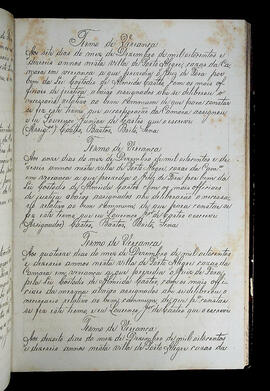 Termo de Vereança
Aos seis dias do mez de Dezembro de mil oitocentos e
dezeseis annos nesta villa de Porto Alegre, cazas da Ca-
mara em vereança a que prezedio o Juiz de Fora pela
Lei Custodio de Almeida Castro com os mais of-
ficiaes de justiça abaixo assignados nella se deliberou o
necessario relativo ao bem commum de que para constar
se fez este termo
eu Lourenço Junior de Castro que escrevi
(Assig.) Castro, Bastos, Brito, Sena
Termo de Vereança
Aos onze dias do mez de Dezembro de mil oitocentos e de-
zeseis annos nesta villa de Porto Alegre cazas da Cam.ª
em vereança a que prezedio o Juiz de Fora pela
Lei Custodio de Almeida Castro com os mais officiaes
de justiça abaixo assignados nella deliberarão o necessa-
rio relativo ao bem commum de que para constar se
fez este termo que eu Lourenço Jr. de Castro escrevi
(Assignados) Castro, Bastos, Brito, Sena
Termo de Vereança
Aos quatorze dias do mez de Dezembro de mil oitocentos
e dezeseis annos nesta villa de Porto Alegre cazas da
Camara em vereança a que prezedio o Juiz de Fora
pela Lei Custodio de Almeida Castro, com os mais offi-
ciaes da mesma abaixo assignados nella se deliberou o
necessario relativo ao bem commum de que p.ª constar
se fez este termo, e eu Lourenço Jr. de Castro que escrevi
Termo de Vereança
Aos dezoito dias do mez de Dezembro de mil oitocentos
e dezeseis annos nesta villa de Porto Alegre, cazas da